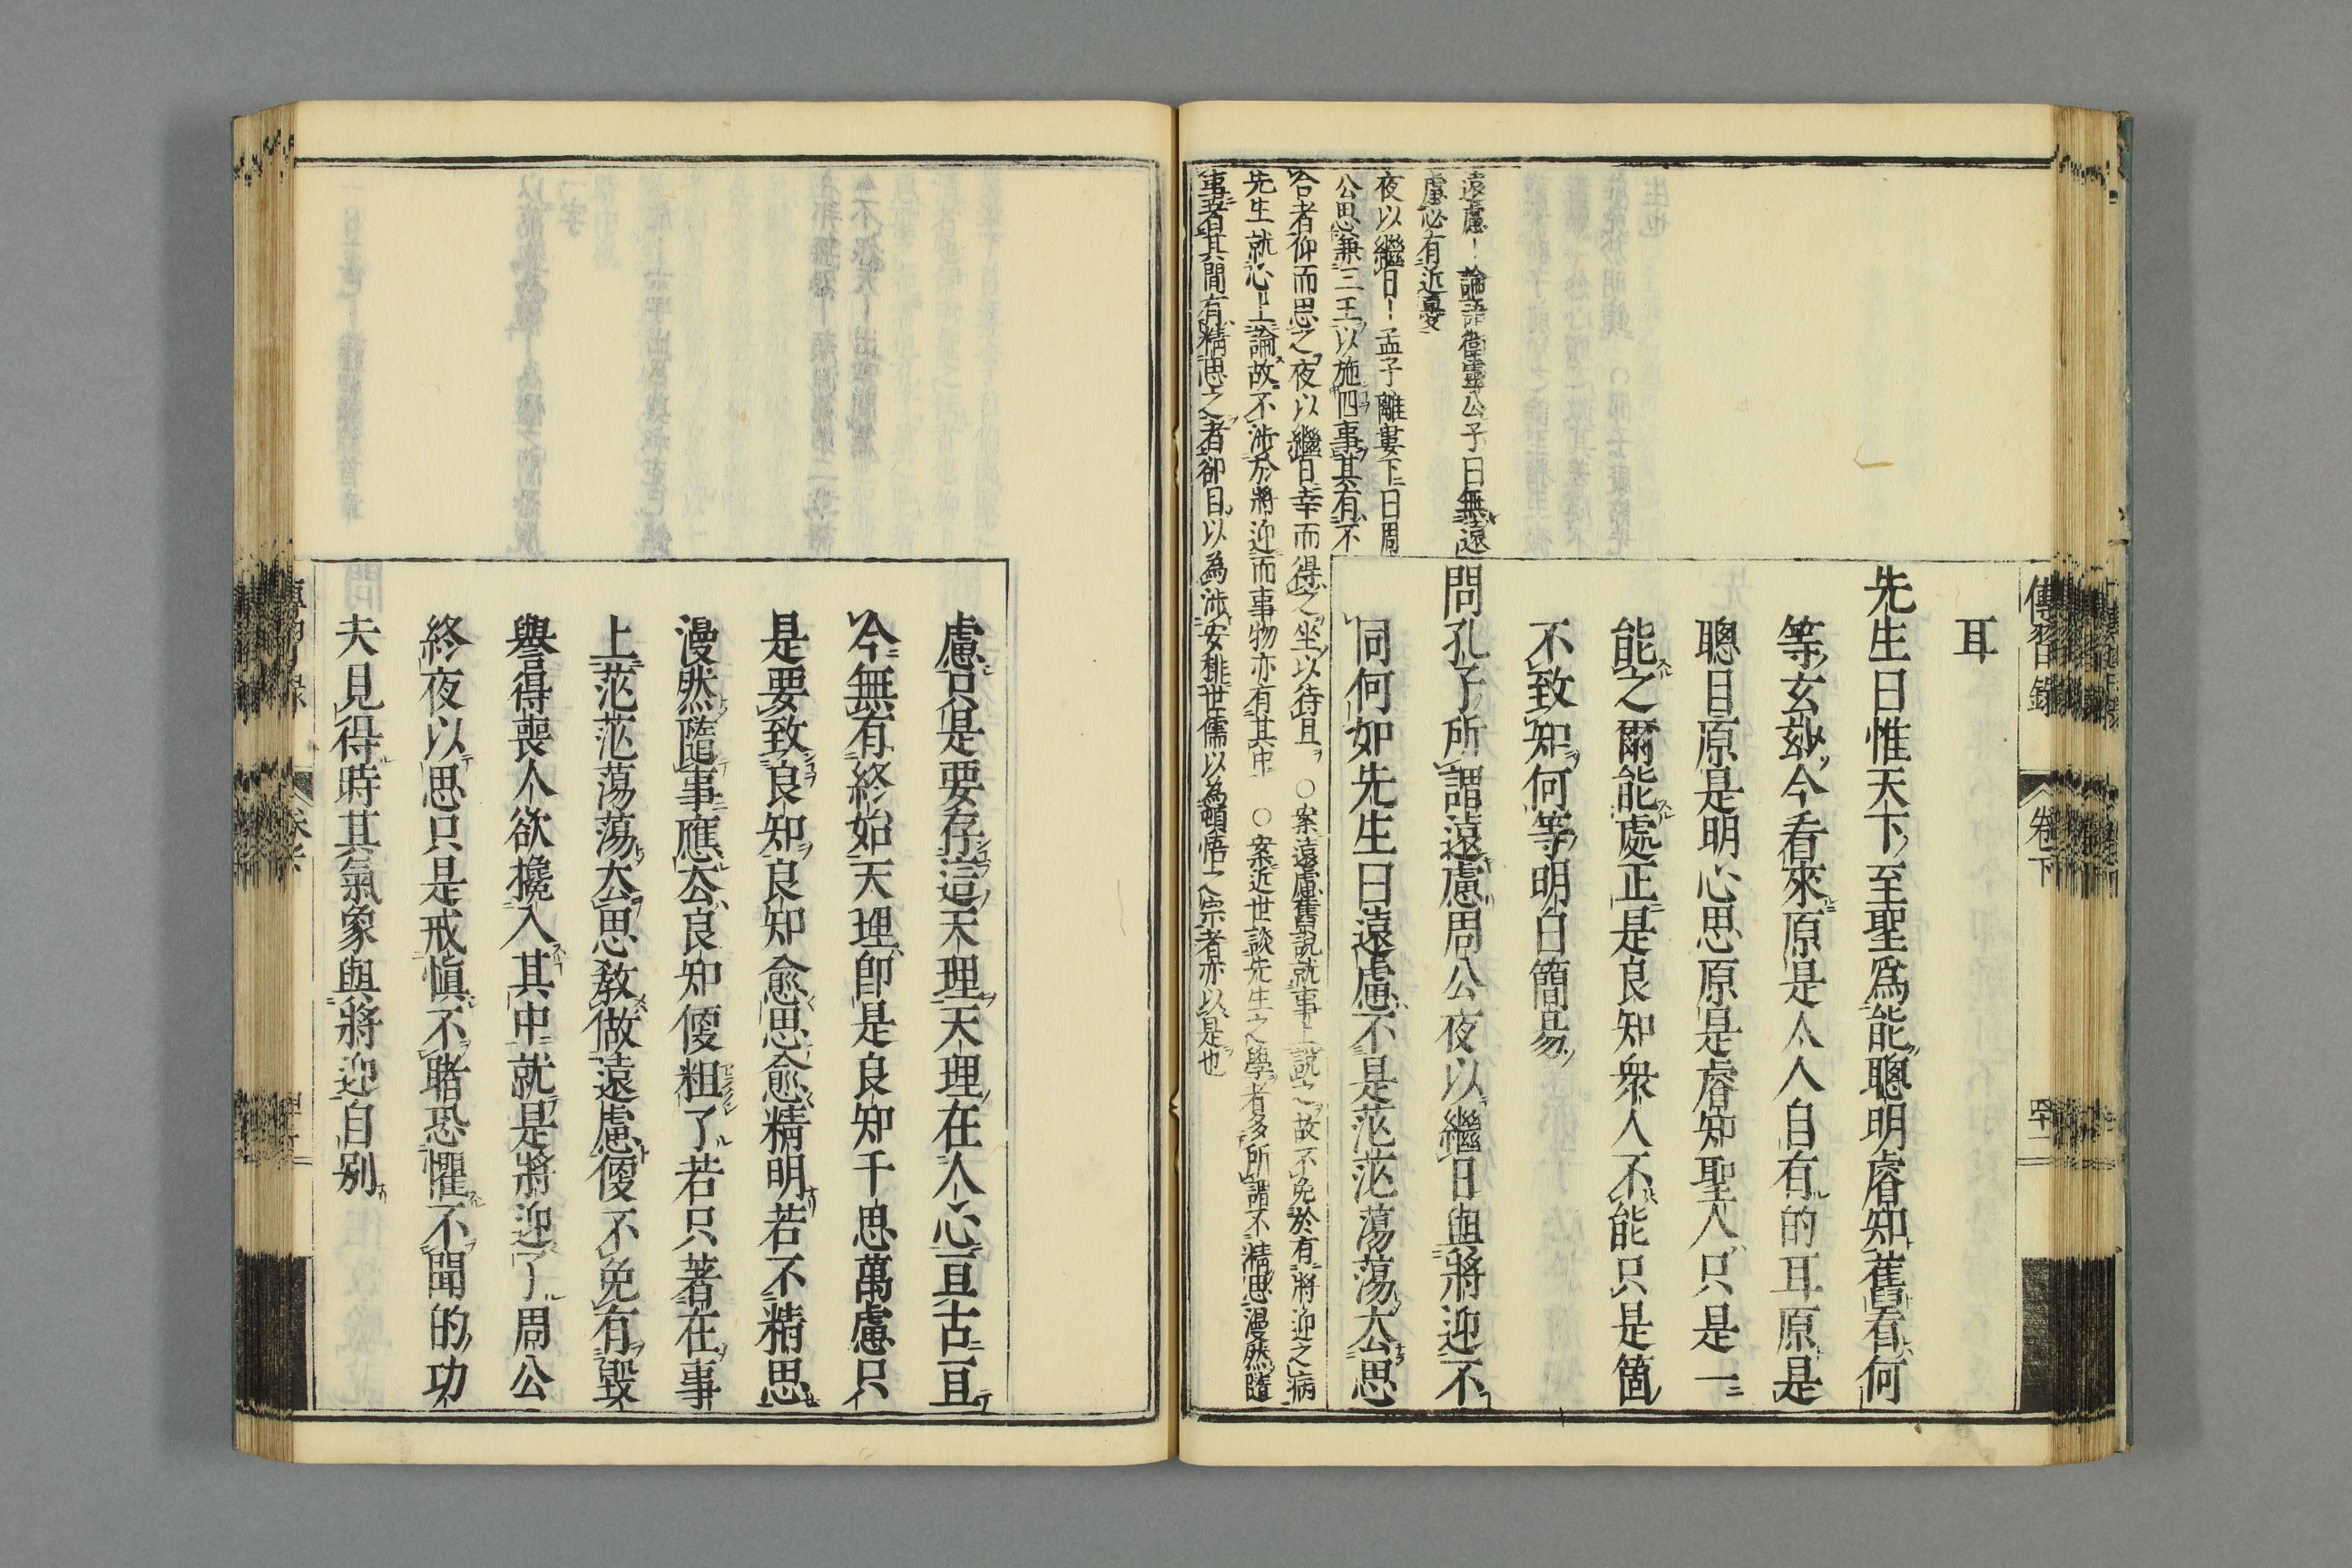 傳習錄
卷下
四十二
耳
先生曰惟天下至聖爲能聰明睿知舊看何
等玄玅今看來原是人人自有的耳原是
聰目原是明心思原是睿知聖人只是一
能之爾能處正是良知衆人不能只是箇
不致知何等明白簡易
問孔子所謂遠慮周公夜以繼日與將迎不
同何如先生曰遠慮不是茫茫蕩蕩去思
遠慮 論語衞靈公子曰無遠
慮必有近憂
夜以繼日 孟子離婁下曰周
公思兼三王以施四事其有不
合者仰而思之夜以繼日幸而得之坐以待旦 ○案遠慮舊說就事上說之故不免於有將迎之病
先生就心上論故不涉於將迎而事物亦有其中 ○案近世談先生之學者多所謂不精思漫然隨
事者其間有精思之者卻目以為涉安排世儒以為頓悟之宗者亦以是也
慮只是要存這天理天理在人心亘古亘
今無有終始天理卽是良知千思萬慮只
是要致良知良知愈思愈精明若不精思
漫然隨事應去良知便粗了若只著在事
上茫茫蕩蕩去思教做遠慮便不免有毀
譽得喪人欲攙入其中就是將迎了周公
終夜以思只是戒愼不睹恐懼不聞的功
夫見得時其氣象與將迎自別